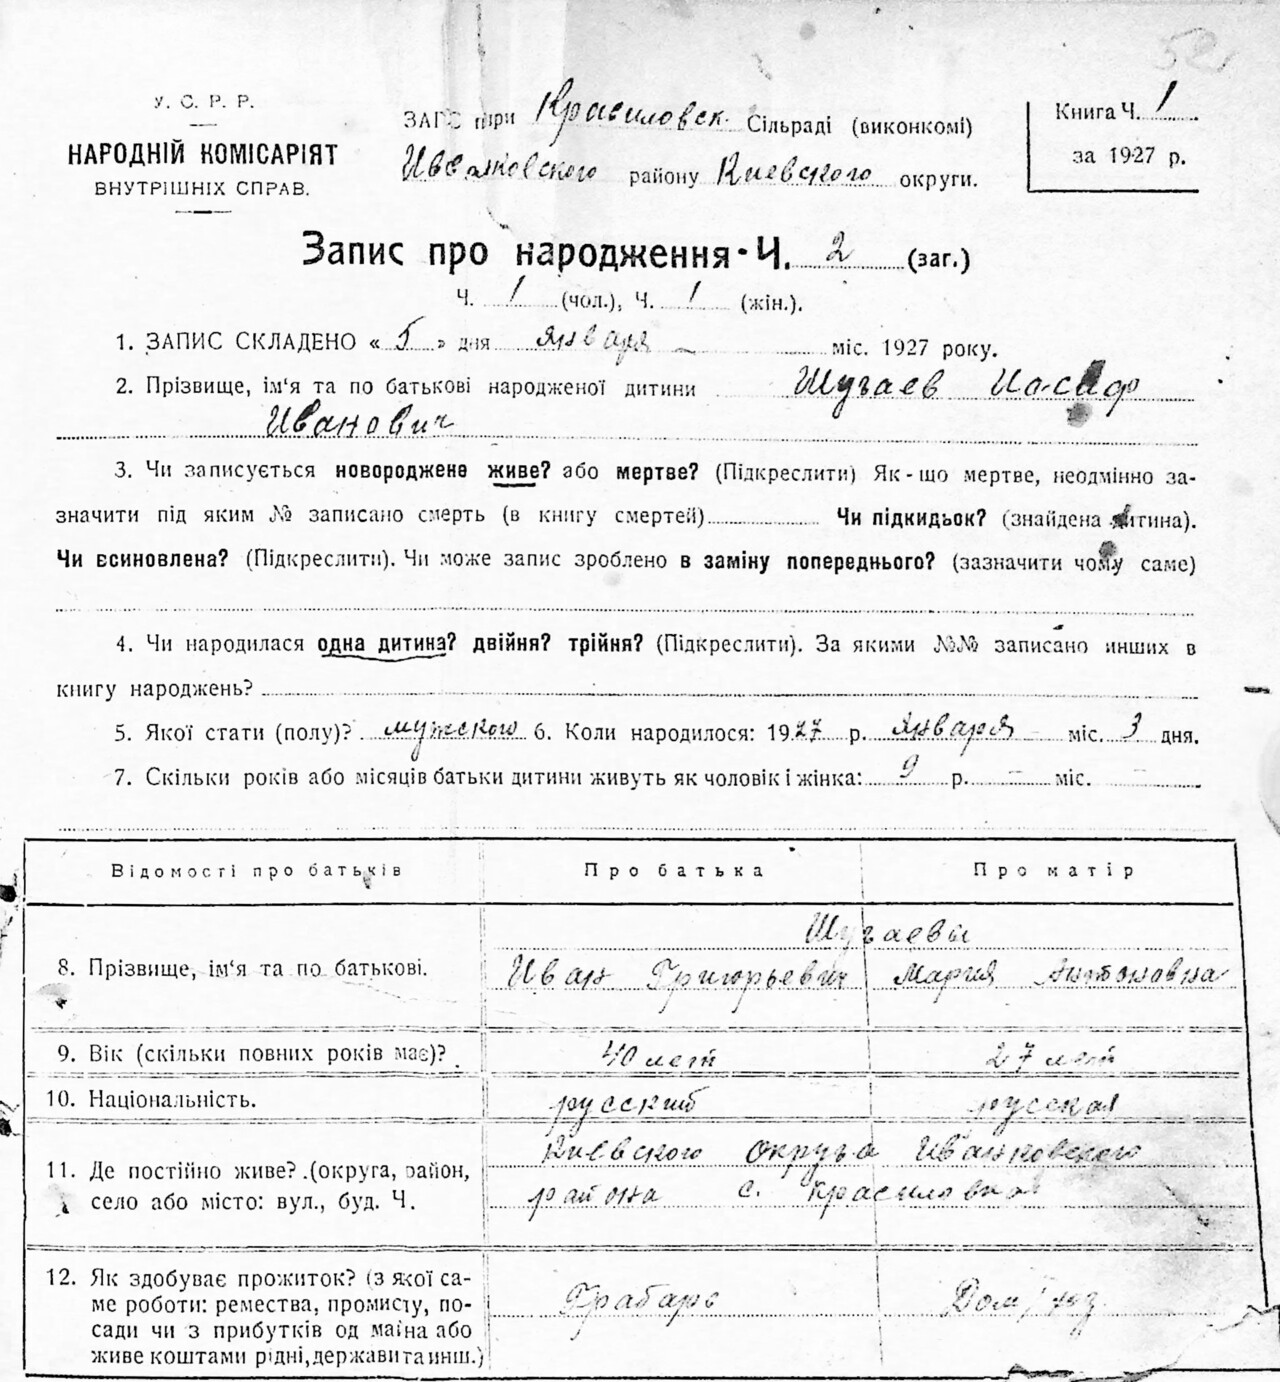 52
У. С. Р. Р.
НАРОДНІЙ КОМІСАРІЯТ
ВНУТРІШНІХ СПРАВ.
ЗАГС при Красиловск. Сільраді (виконкомі)
Иванковского району Киевского округи.
Книга Ч. 1
за 1927 р.
Запис про народження - Ч. 2 (заг.)
Ч. 1 (чол.), Ч. 1 (жін.).
1. ЗАПИС СКЛАДЕНО « 5 » дня января міс. 1927 року.
2. Прізвище, ім'я та по батькові народженої дитини Шугаев Иосиф
Иванович
3. Чи записується новороджене живе? або мертве? (Підкреслити) Як-що мертве, неодмінно за-
значити під яким № записано смерть (в книгу смертей) Чи підкидьок? (знайдена дитина).
Чи всиновлена? (Підкреслити). Чи може запис зроблено в заміну попереднього? (зазначити чому саме)
4. Чи народилася одна дитина? двійня? трійня? (Підкреслити). За якими №№ записано инших в
книгу народжень?
5. Якої стати (полу)? мужского 6. Коли народилося: 1927 р. Января міс. 3 дня.
7. Скільки років або місяців батьки дитини живуть як чоловік і жінка: 9 р. – міс. –
Відомості про батьків Про батька Про матір
Шугаевы
8. Прізвище, ім'я та по батькові. Иван Григорьевич Мария Антоновна
9. Вік (скільки повних років має)? 40 лет 27 лет
10. Національність. русский русская
Киевского округа Иванковского
11. Де постійно живе? (округа, район,
района с. Красиловка
село або місто: вул., буд. Ч.
12. Як здобуває прожиток? (з якої са-
ме роботи: ремества, промислу, по- Грабарь Дом/хоз.
сади чи з прибутків од маїна або
живе коштами рідні, держави та инш.)